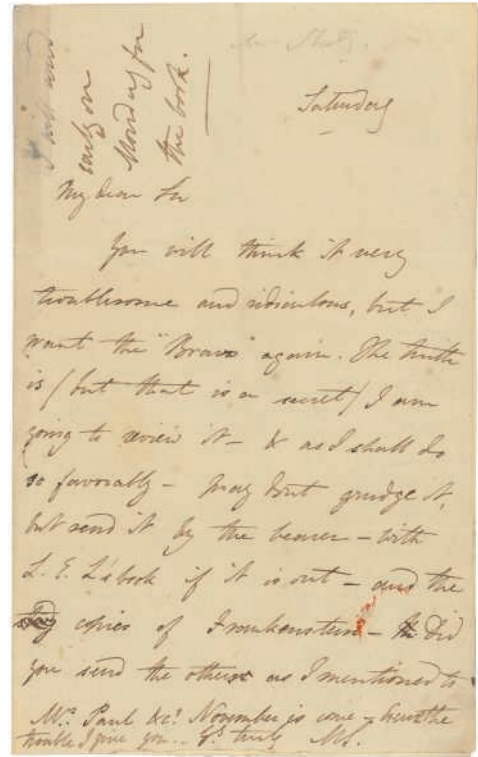 I will send
early on
Monday for
the book.
Mrs Shelley.
Saturday
My dear Sir
You will think it very
troublesome and ridiculous, but I
want the "Bravo" again. The truth
is (but that is a secret) I am
going to review it - & as I shall do
so favorably - pray dont grudge it,
but send it by the bearer - with
L. E. L's book if it is out - and the
copies of Frankenstein - did
you send the others as I mentioned to
Mrs. Paul &c? November is come - the
trouble I give you - Ys truly MS.